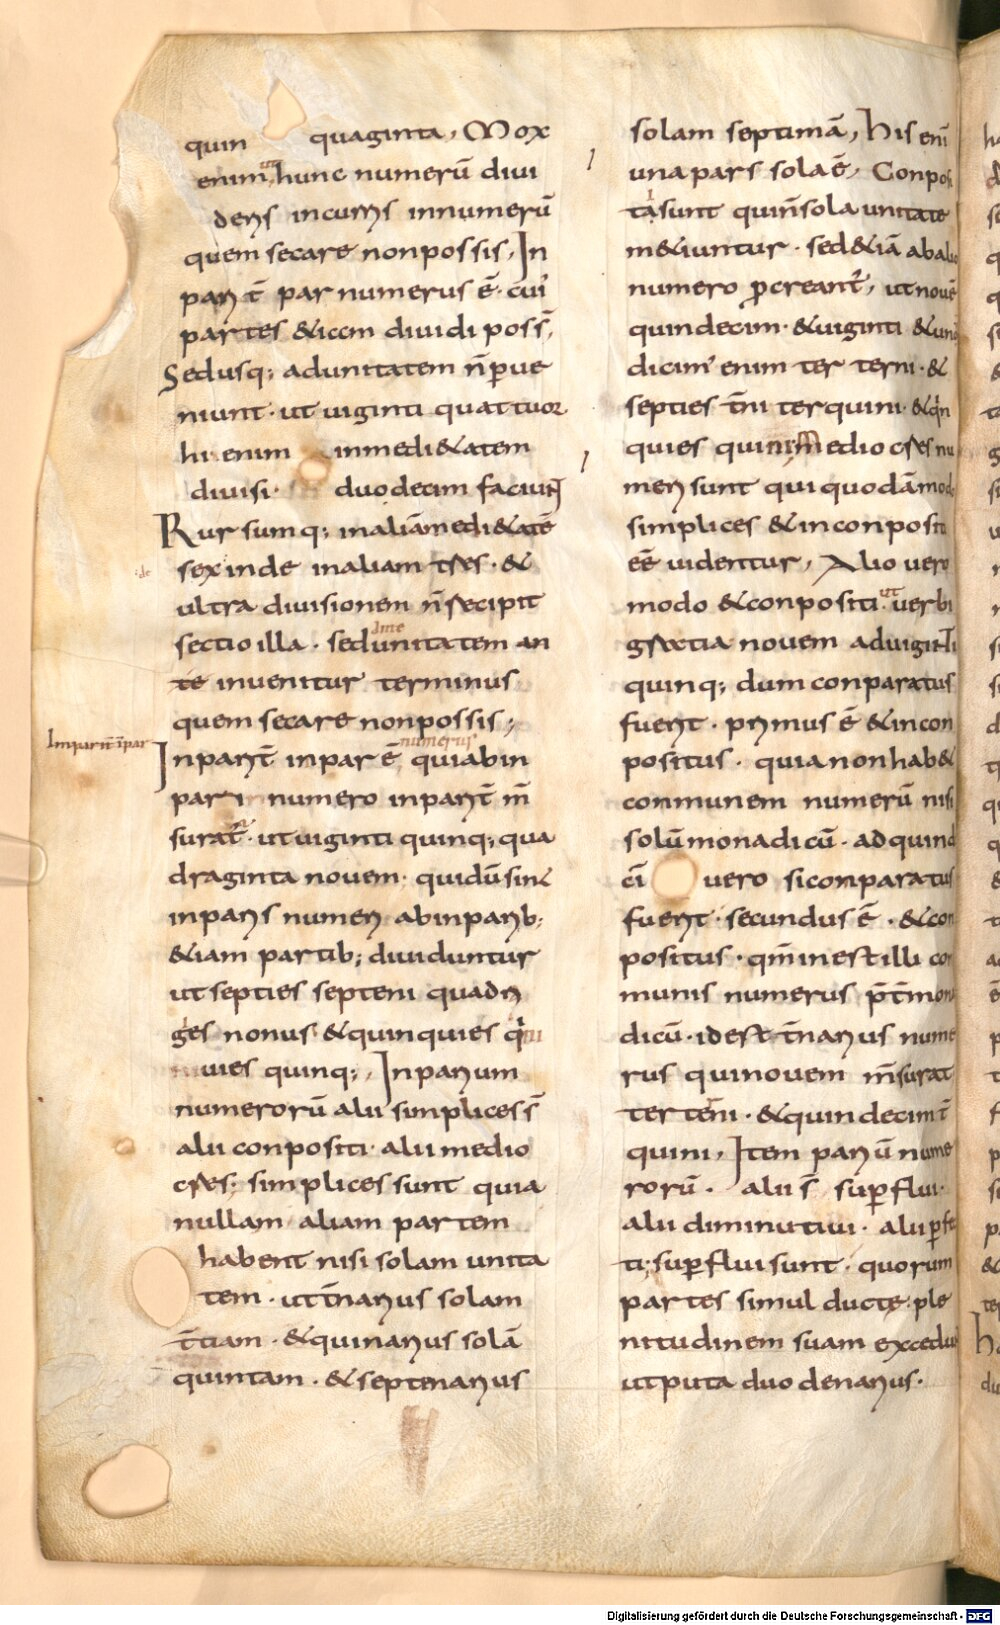 quin quaginta, Mox
enim ut hunc numerū divi
dens incurris innumerū
quem secare nonpossis, In
parit̄ par numerus ē· cui'
partes &iccm dividi poss̄,
Sedusq; adunitatem n̄ perve
niunt· ut viginti quattuor
hi enim inmedi&atem
divisi· duodecim faciunt
Rursumq; inaliāmedi&atē
sex inde inaliam tres· &
ultra divisionem n̄ recipit
sectio illa· sedunitatem an
te invenitur terminus
quem secare nonpossis;
Inparit̄ inpar ē numerus quiabin
pari numero inparit̄ m̄
surat̄· ut viginti quinq; qua
draginta novem· quidūsint
inparis numeri abinparib;
&iam partib; dividuntur
ut septies septeni quadri
ges nonus &quinquies
vies quinq;, Inparium
numerorū alii simplices s̄
alii conpositi· alii medio
cres; simplices sunt quia
nullam aliam partem
habent nisi solam unita
tem· ut t̄narius solam
t̄tiam· &quinarius solā
quintam· &septenarius
Imparit̄ īpar
solam septimā, His eni
una pars sola ē, Conposi
ti sunt quin̄sola unitate
m&iuntur· sed&iā abalio
numero pcreant̄, ut novē
quindecim· &viginti &un
dicim' enim ter terni· &
septies t̄ni terquini· &qn
quies quini, Mediocres nu
meri sunt qui quodāmodo
simplices &inconpositi
eē videntur, Alio vero
modo &conpositi ut verbi
gratia novem adviginti
quinq; dum conparatus
fuerit· primus ē &incon
positus· quia non hab&
communem numerū nisi
solū monadicū· ad quind
ci vero si conparatus
fuerit· secundus ē· &con
positus· qm̄ inest illi com
munis numerus p̄t̄ mona
dicū· id est t̄narius nume
rus qui novem m̄surat
ter terni· &quindecim t̄
quini, Item pariū nume
rorū· alii s̄ superflui·
alii diminutivi· alii pfe
ti· superflui sunt· quorum
partes simul ducte ple
nitudinem suam excedun
utputa duodenarius·
Digitalisierung gefördert durch die Deutsche Forschungsgemeinschaft - DFG